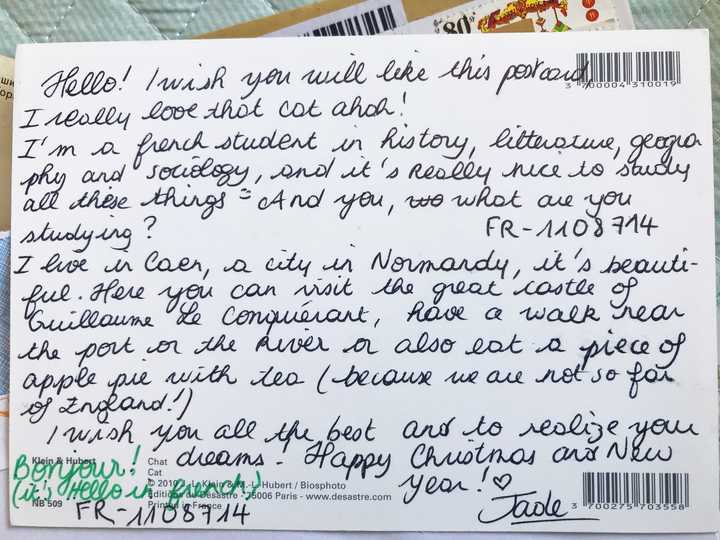 80
Hello! I wish you will like this postcard,
3 700004 310019
I really love that cat ahah!
I'm a french student in history, litterature, geogra-
phy and sociology, and it's really nice to study
all these things = And you, what are you
studying?
FR-1108714
I live in Caen, a city in Normandy, it's beauti-
ful. Here you can visit the great castle of
Guillaume Le Conquérant, have a walk near
the port or the river or also eat a piece of
apple pie with tea (because we are not so far
of England!)
I wish you all the best and to realize your
dreams! Happy Christmas and New
Year! ♡
Jade
Klein & Hubert
Bonjour!
(it's Hello in french!;)
NB 509
FR-1108714
Chat
Cat
Hubert / Biosphoto
Éditions du Désastre 75006 Paris - www.desastre.com
Printed in France
3 700275 703558